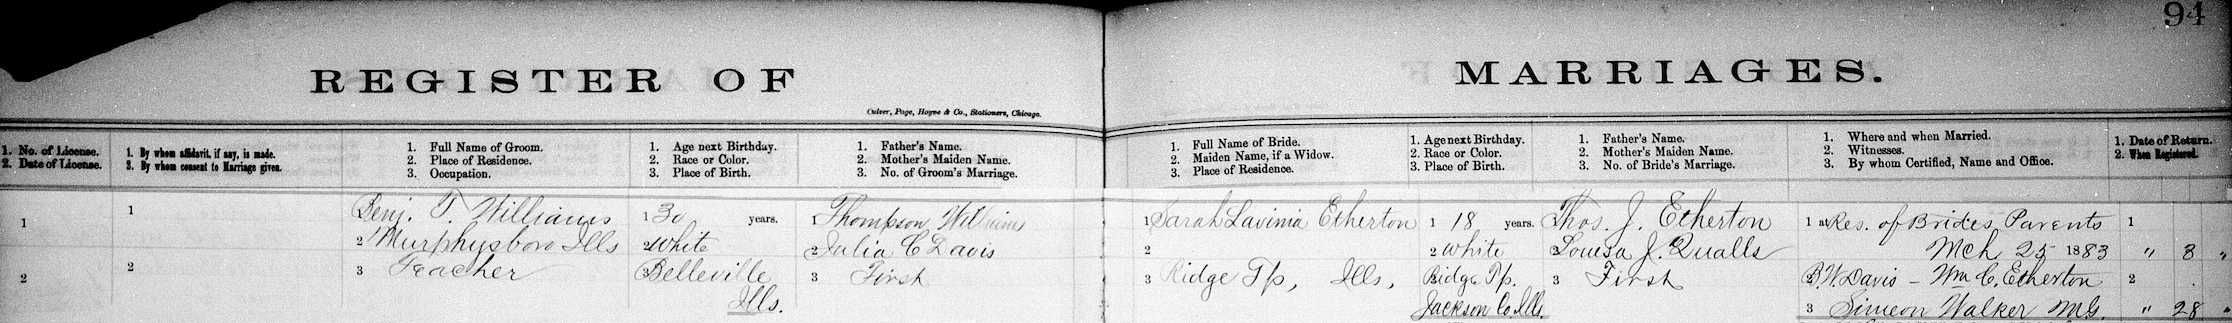 94
REGISTER OF MARRIAGES.
Culver, Page, Hoyne & Co., Stationers, Chicago.
1. No. of License.
2. Date of License.
1. By whom affidavit, if any, is made.
2. By whom consent to Marriage given.
1. Full Name of Groom.
2. Place of Residence.
3. Occupation.
1. Age next Birthday.
2. Race or Color.
3. Place of Birth.
1. Father's Name.
2. Mother's Maiden Name.
3. No. of Groom's Marriage.
1. Full Name of Bride.
2. Maiden Name, if a Widow.
3. Place of Residence.
1. Age next Birthday.
2. Race or Color.
3. Place of Birth.
1. Father's Name.
2. Mother's Maiden Name.
3. No. of Bride's Marriage.
1. Where and when Married.
2. Witnesses.
3. By whom Certified, Name and Office.
1. Date of Return.
2. When Registered.
1
2
1
2
Benj. T. Williams
2 Murphysboro Ills
3 Teacher
1 30 years.
2 White
3 Belleville
Ills.
1 Thompson Williams
2 Julia C Davis
3 First
1 Sarah Lavinia Etherton
2
3 Ridge Tp, Ills,
1 18 years.
2 White
Ridge Tp.
Jackson Co. Ills.
Thos. J. Etherton
2 Louisa J. Qualls
3 First
1 at Res. of Brides Parents
Mch 25 1883
2 B. W. Davis - Wm C. Etherton
3 Simeon Walker M.G.
1
" 3 "
2
" 28 "